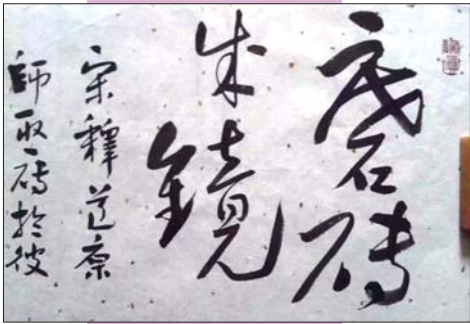 磨磚
成鏡
宋釋道原
師取磚於彼